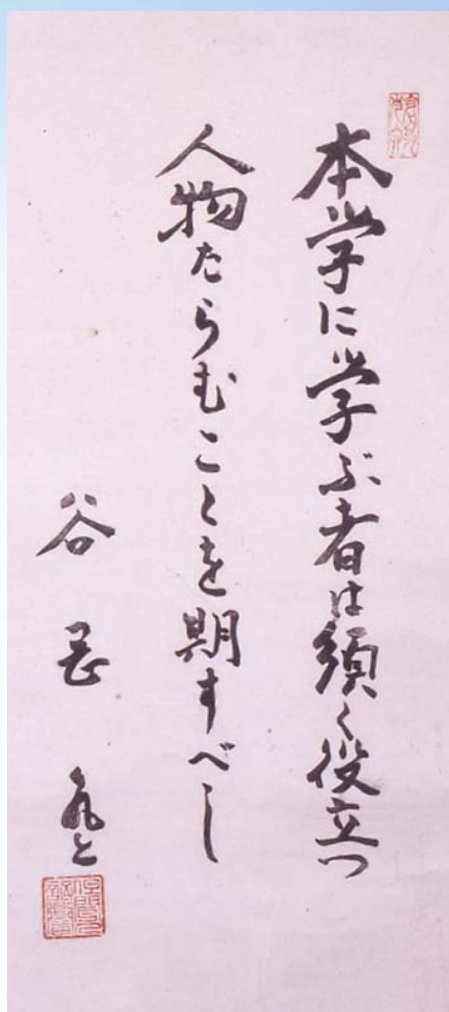 本学に学ぶ者は須く役立つ
人物たらむことを期すべし
谷岡登